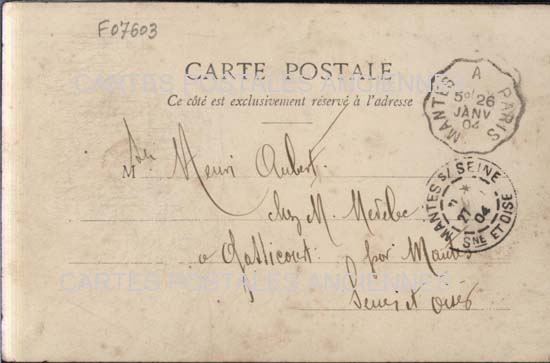 F07603
CARTE POSTALE
Ce côté est exclusivement réservé à l'adresse
CARTES POSTALES ANCIENNES
MANTES A PARIS
26
JANV
04
Henri Aubert
chez M.
MANTES S/ SEINE
27
04
SNE ET OISE
à par Mantes
CARTES POSTALES ANCIENNES
Seine et Oise